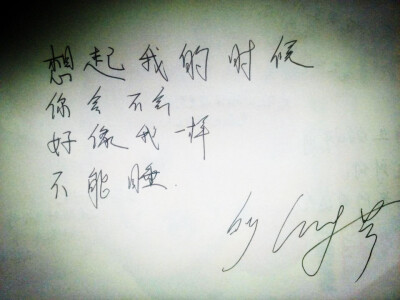 想起我的时候
你会不会
好像我一样
不能睡.
by